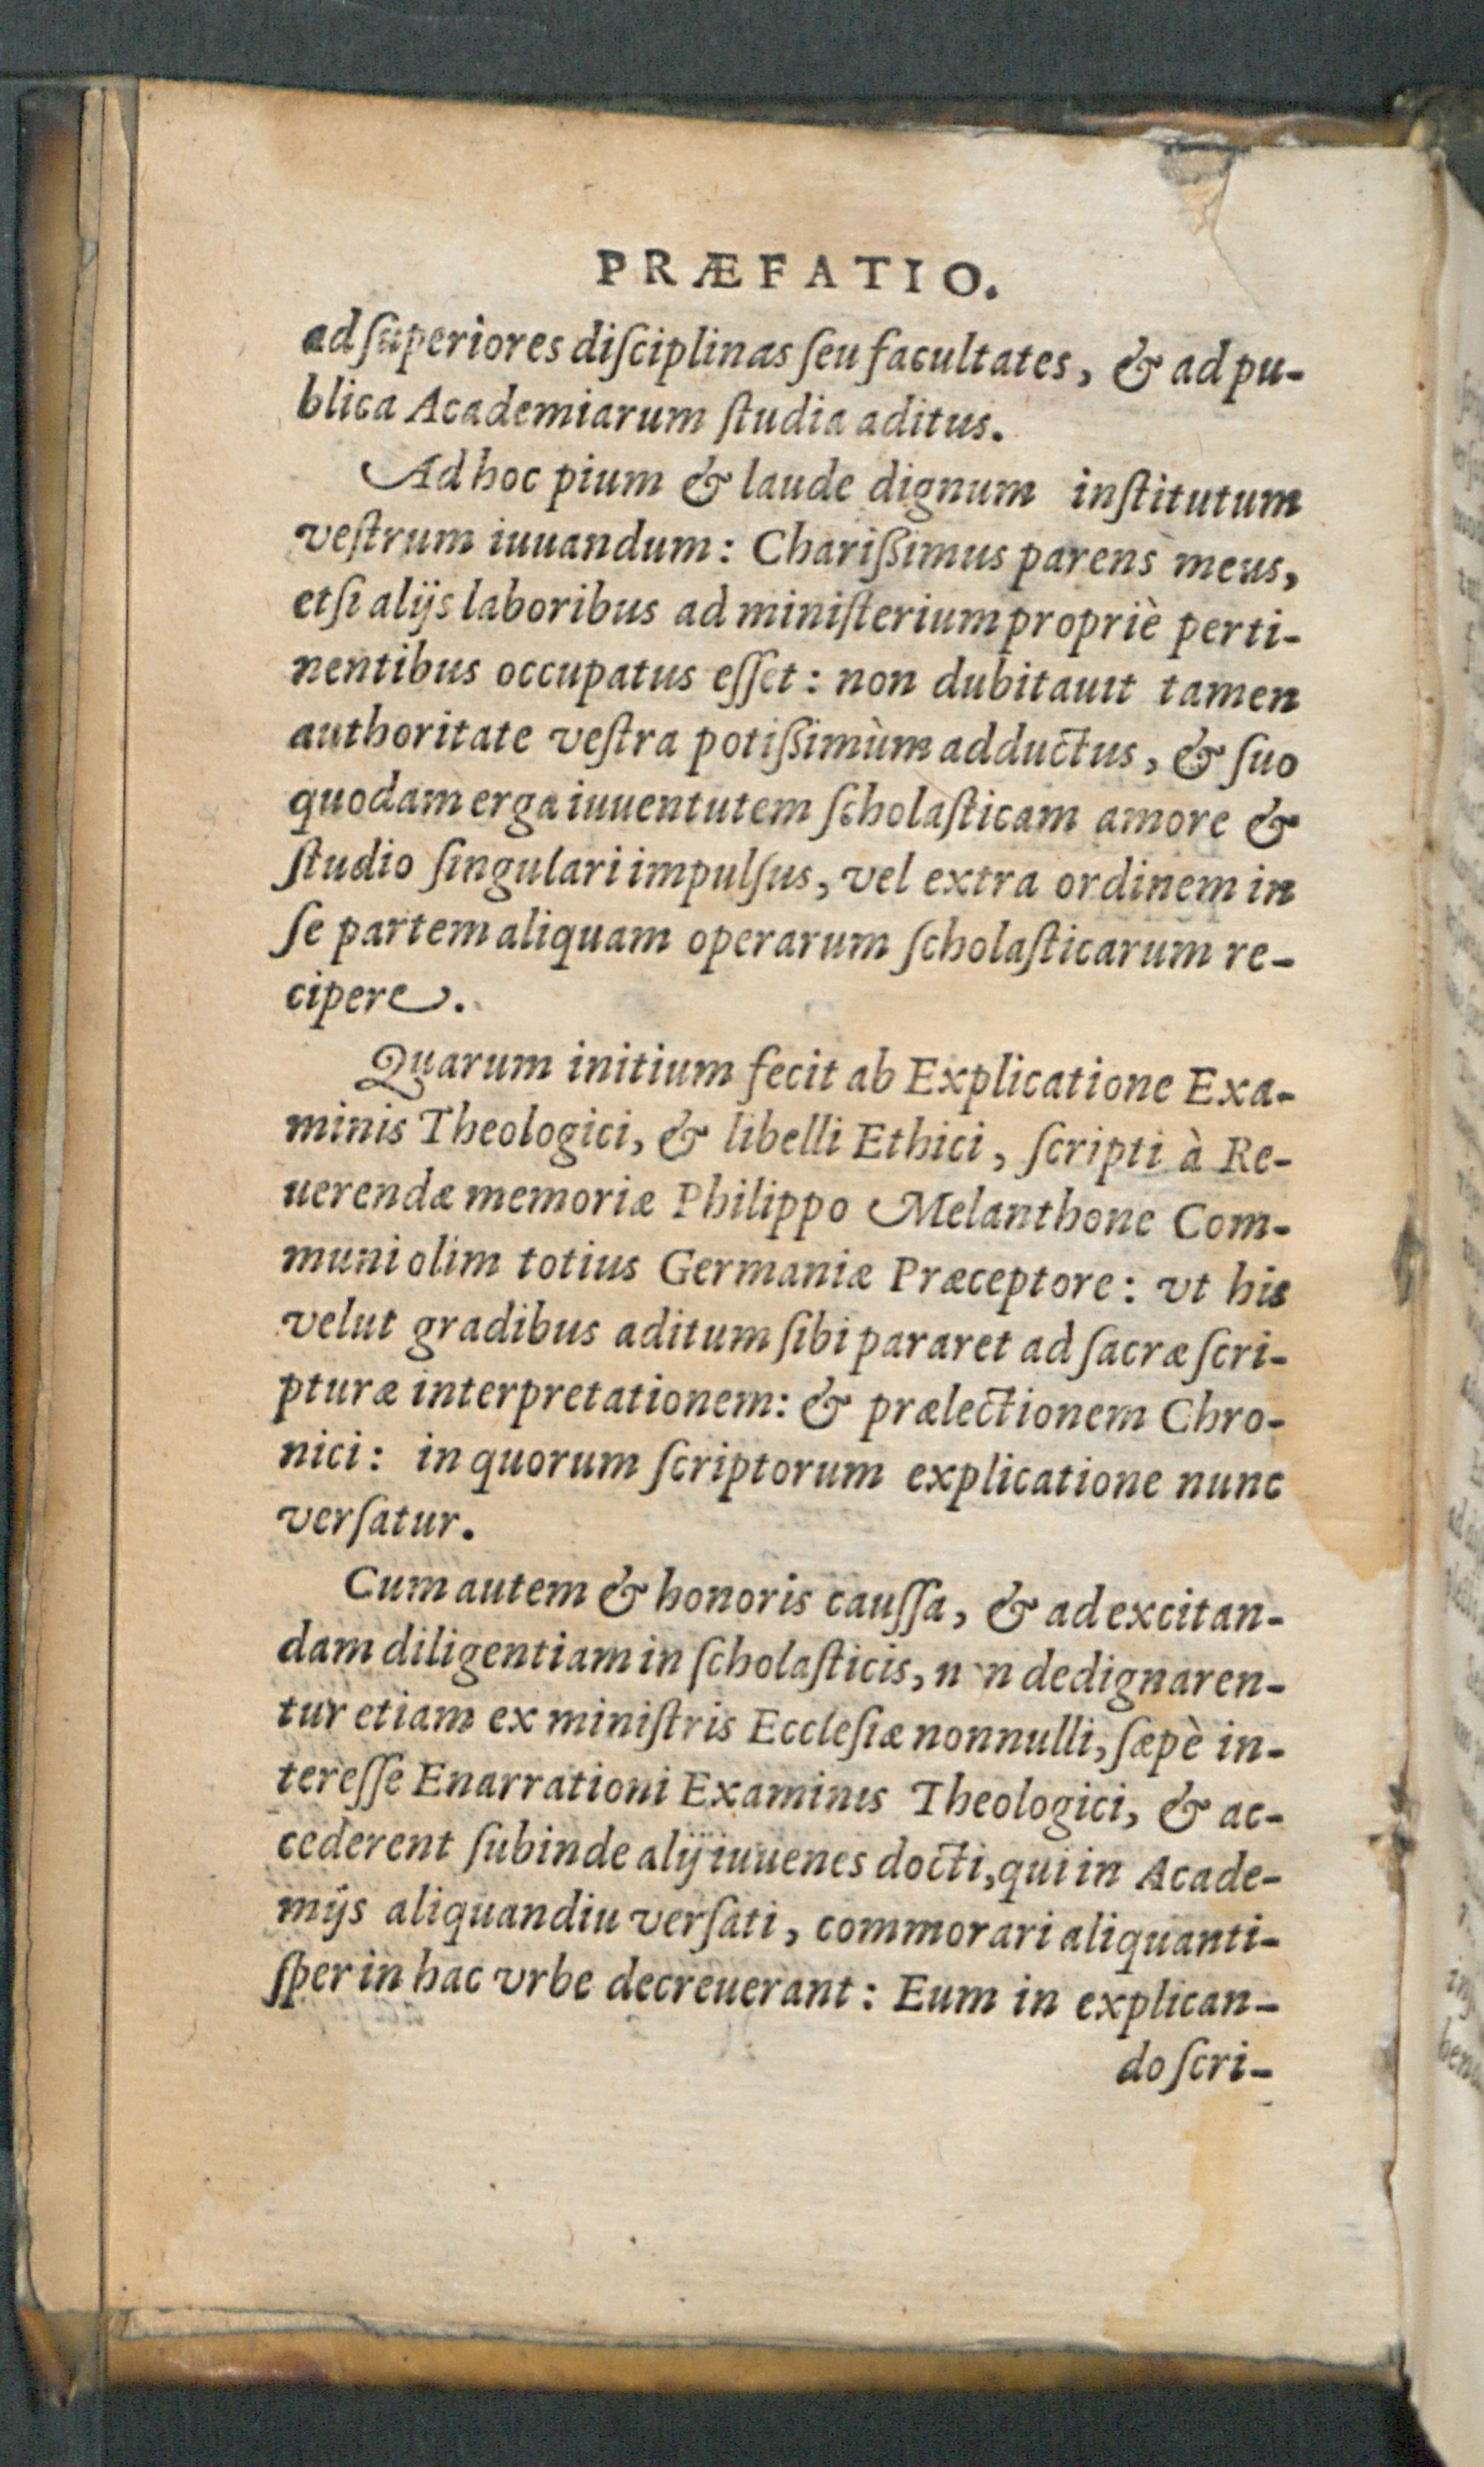 PRÆFATIO.
ad ſuperiores diſciplinas ſeu facultates, & ad pu-
blica Academiarum ſtudia aditus.
Ad hoc pium & laude dignum inſtitutum
veſtrum iuuandum: Chariſſimus parens meus,
etſi alijs laboribus ad miniſterium propriè perti-
nentibus occupatus eſſet: non dubitauit tamen
authoritate veſtra potiſſimùm adductus, & ſuo
quodam erga iuuentutem ſcholaſticam amore &
ſtudio ſingulari impulſus, vel extra ordinem in
ſe partem aliquam operarum ſcholaſticarum re-
cipere.
Quarum initium fecit ab Explicatione Exa-
minis Theologici, & libelli Ethici, ſcripti à Re-
uerendæ memoriæ Philippo Melanthone Com-
muni olim totius Germaniæ Præceptore: vt his
velut gradibus aditum ſibi pararet ad ſacræ ſcri-
pturæ interpretationem: & prælectionem Chro-
nici: in quorum ſcriptorum explicatione nunc
verſatur.
Cum autem & honoris cauſſa, & ad excitan-
dam diligentiam in ſcholaſticis, non dedignaren-
tur etiam ex miniſtris Eccleſiæ nonnulli, ſæpè in-
tereſſe Enarrationi Examinis Theologici, & ac-
cederent ſubinde alij iuuenes docti, qui in Acade-
mijs aliquandiu verſati, commorari aliquanti-
ſper in hac vrbe decreuerant: Eum in explican-
do ſcri-